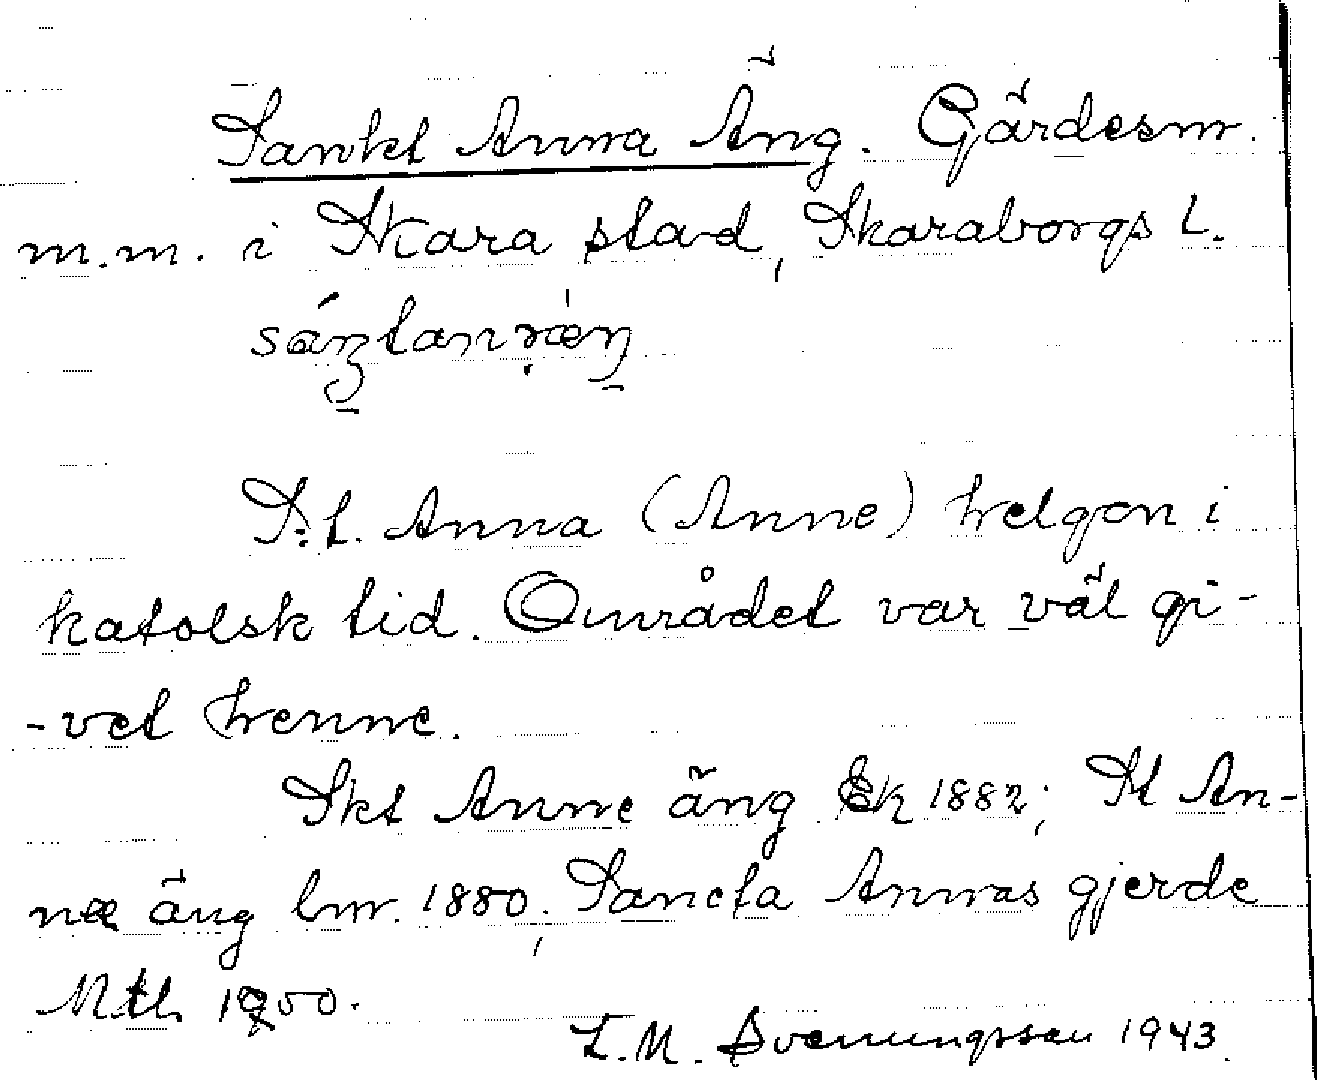 Sankt Anna Äng. Gärdesnr.
m.m. i Skara stad, Skaraborgs l.
sáŋtanræŋ
S:t. Anna (Anne) helgon i
katolsk tid. Området var väl gi-
-vet henne.
Skt Anne äng Ek 1882; St An-
næ äng lnr. 1880; Sancta Annas gjerde
Mtl. 1900.
L.M. Svenungsson 1943.